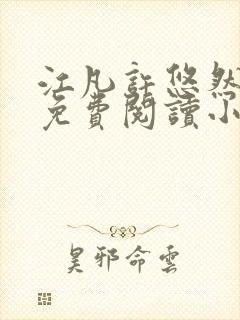 江凡許悠然
免費閱讀小
昊邪命雲